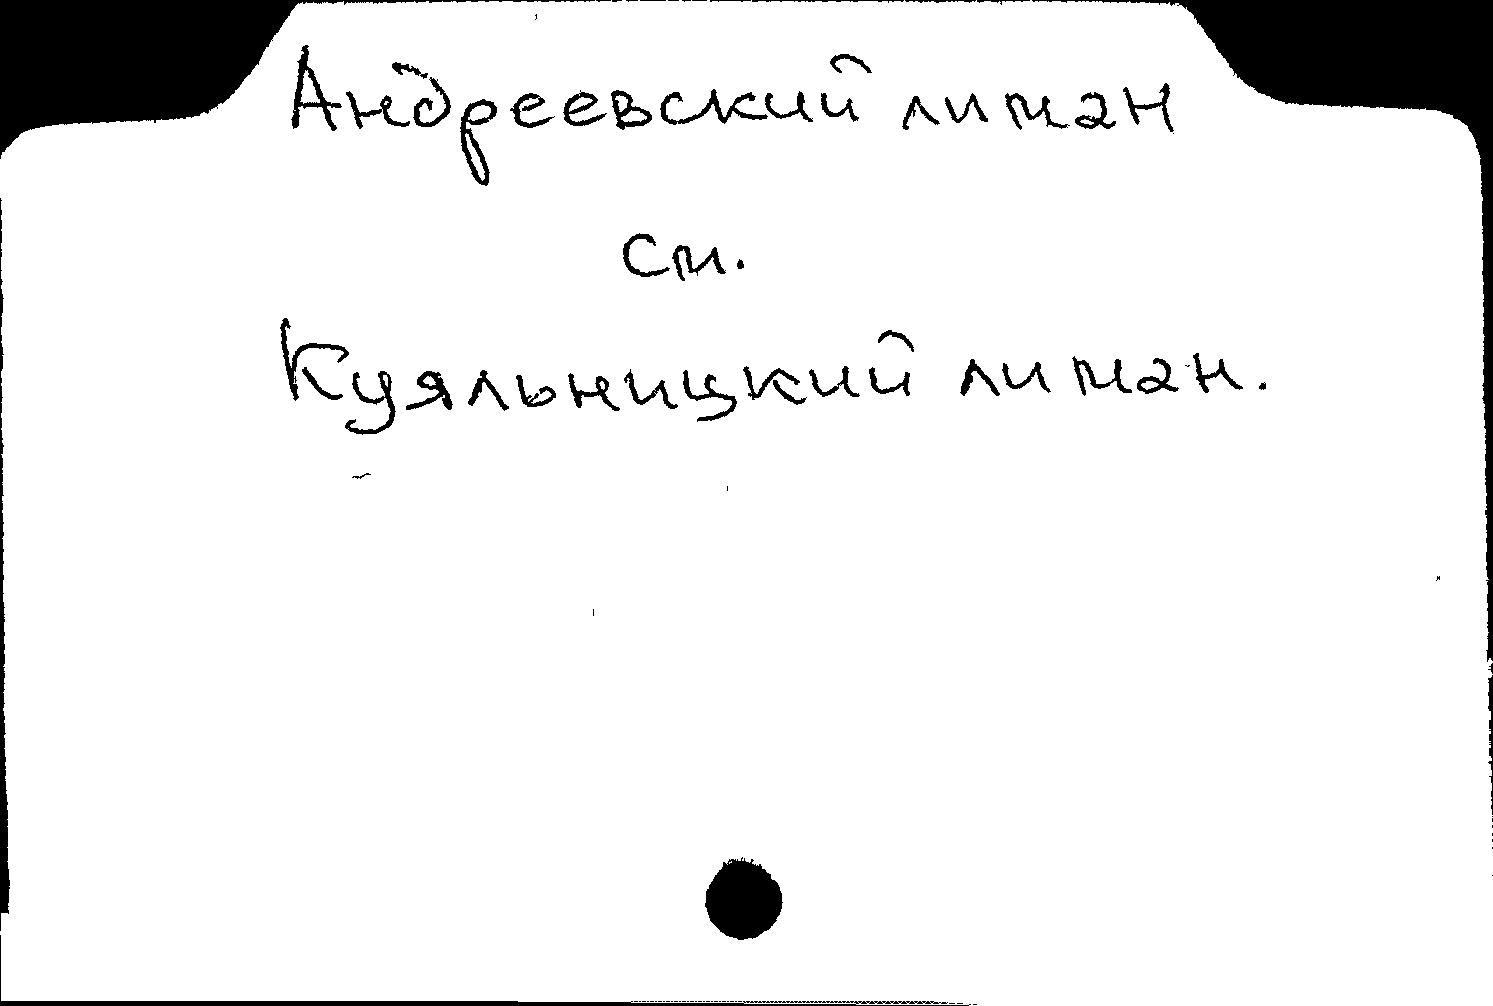 Андреевский лиман
см.
Куяльницкий лиман.